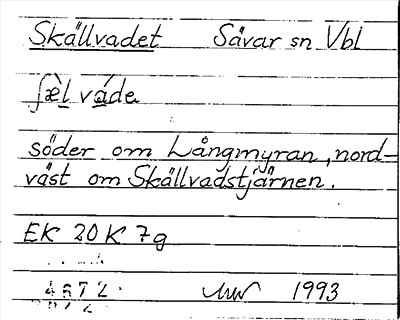 Skällvadet Sävar sn Vbl
ʃæ̀l váde
söder om Långmyran, nord-
väst om Skällvadstjärnen.
EK 20K 7g
4572
1993